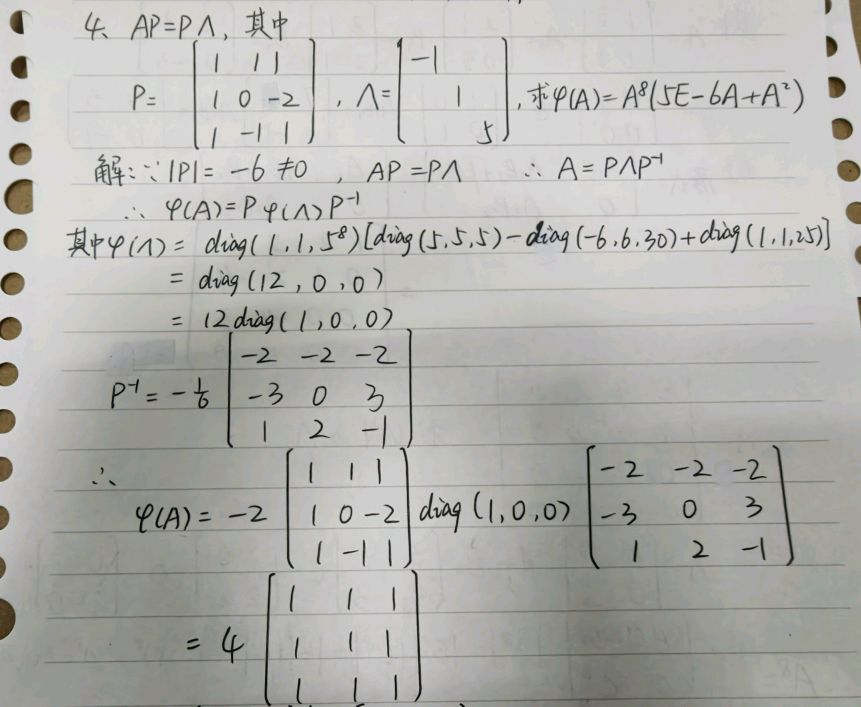 4、AP=PΛ, 其中
P= [1 1 1; 1 0 -2; 1 -1 1], Λ= [-1; 1; 5], 求φ(A)=A⁸(5E-6A+A²)
解: ∵ |P|= -6 ≠0, AP=PΛ ∴ A=PΛP⁻¹
∴ φ(A)=Pφ(Λ)P⁻¹
其中φ(Λ)= diag(1,1,5⁸)[diag(5,5,5)-diag(-6,6,30)+diag(1,1,25)]
= diag(12,0,0)
= 12diag(1,0,0)
P⁻¹= -1/6 [-2 -2 -2; -3 0 3; 1 2 -1]
∴
φ(A)= -2 [1 1 1; 1 0 -2; 1 -1 1] diag(1,0,0) [-2 -2 -2; -3 0 3; 1 2 -1]
= 4 [1 1 1; 1 1 1; 1 1 1]